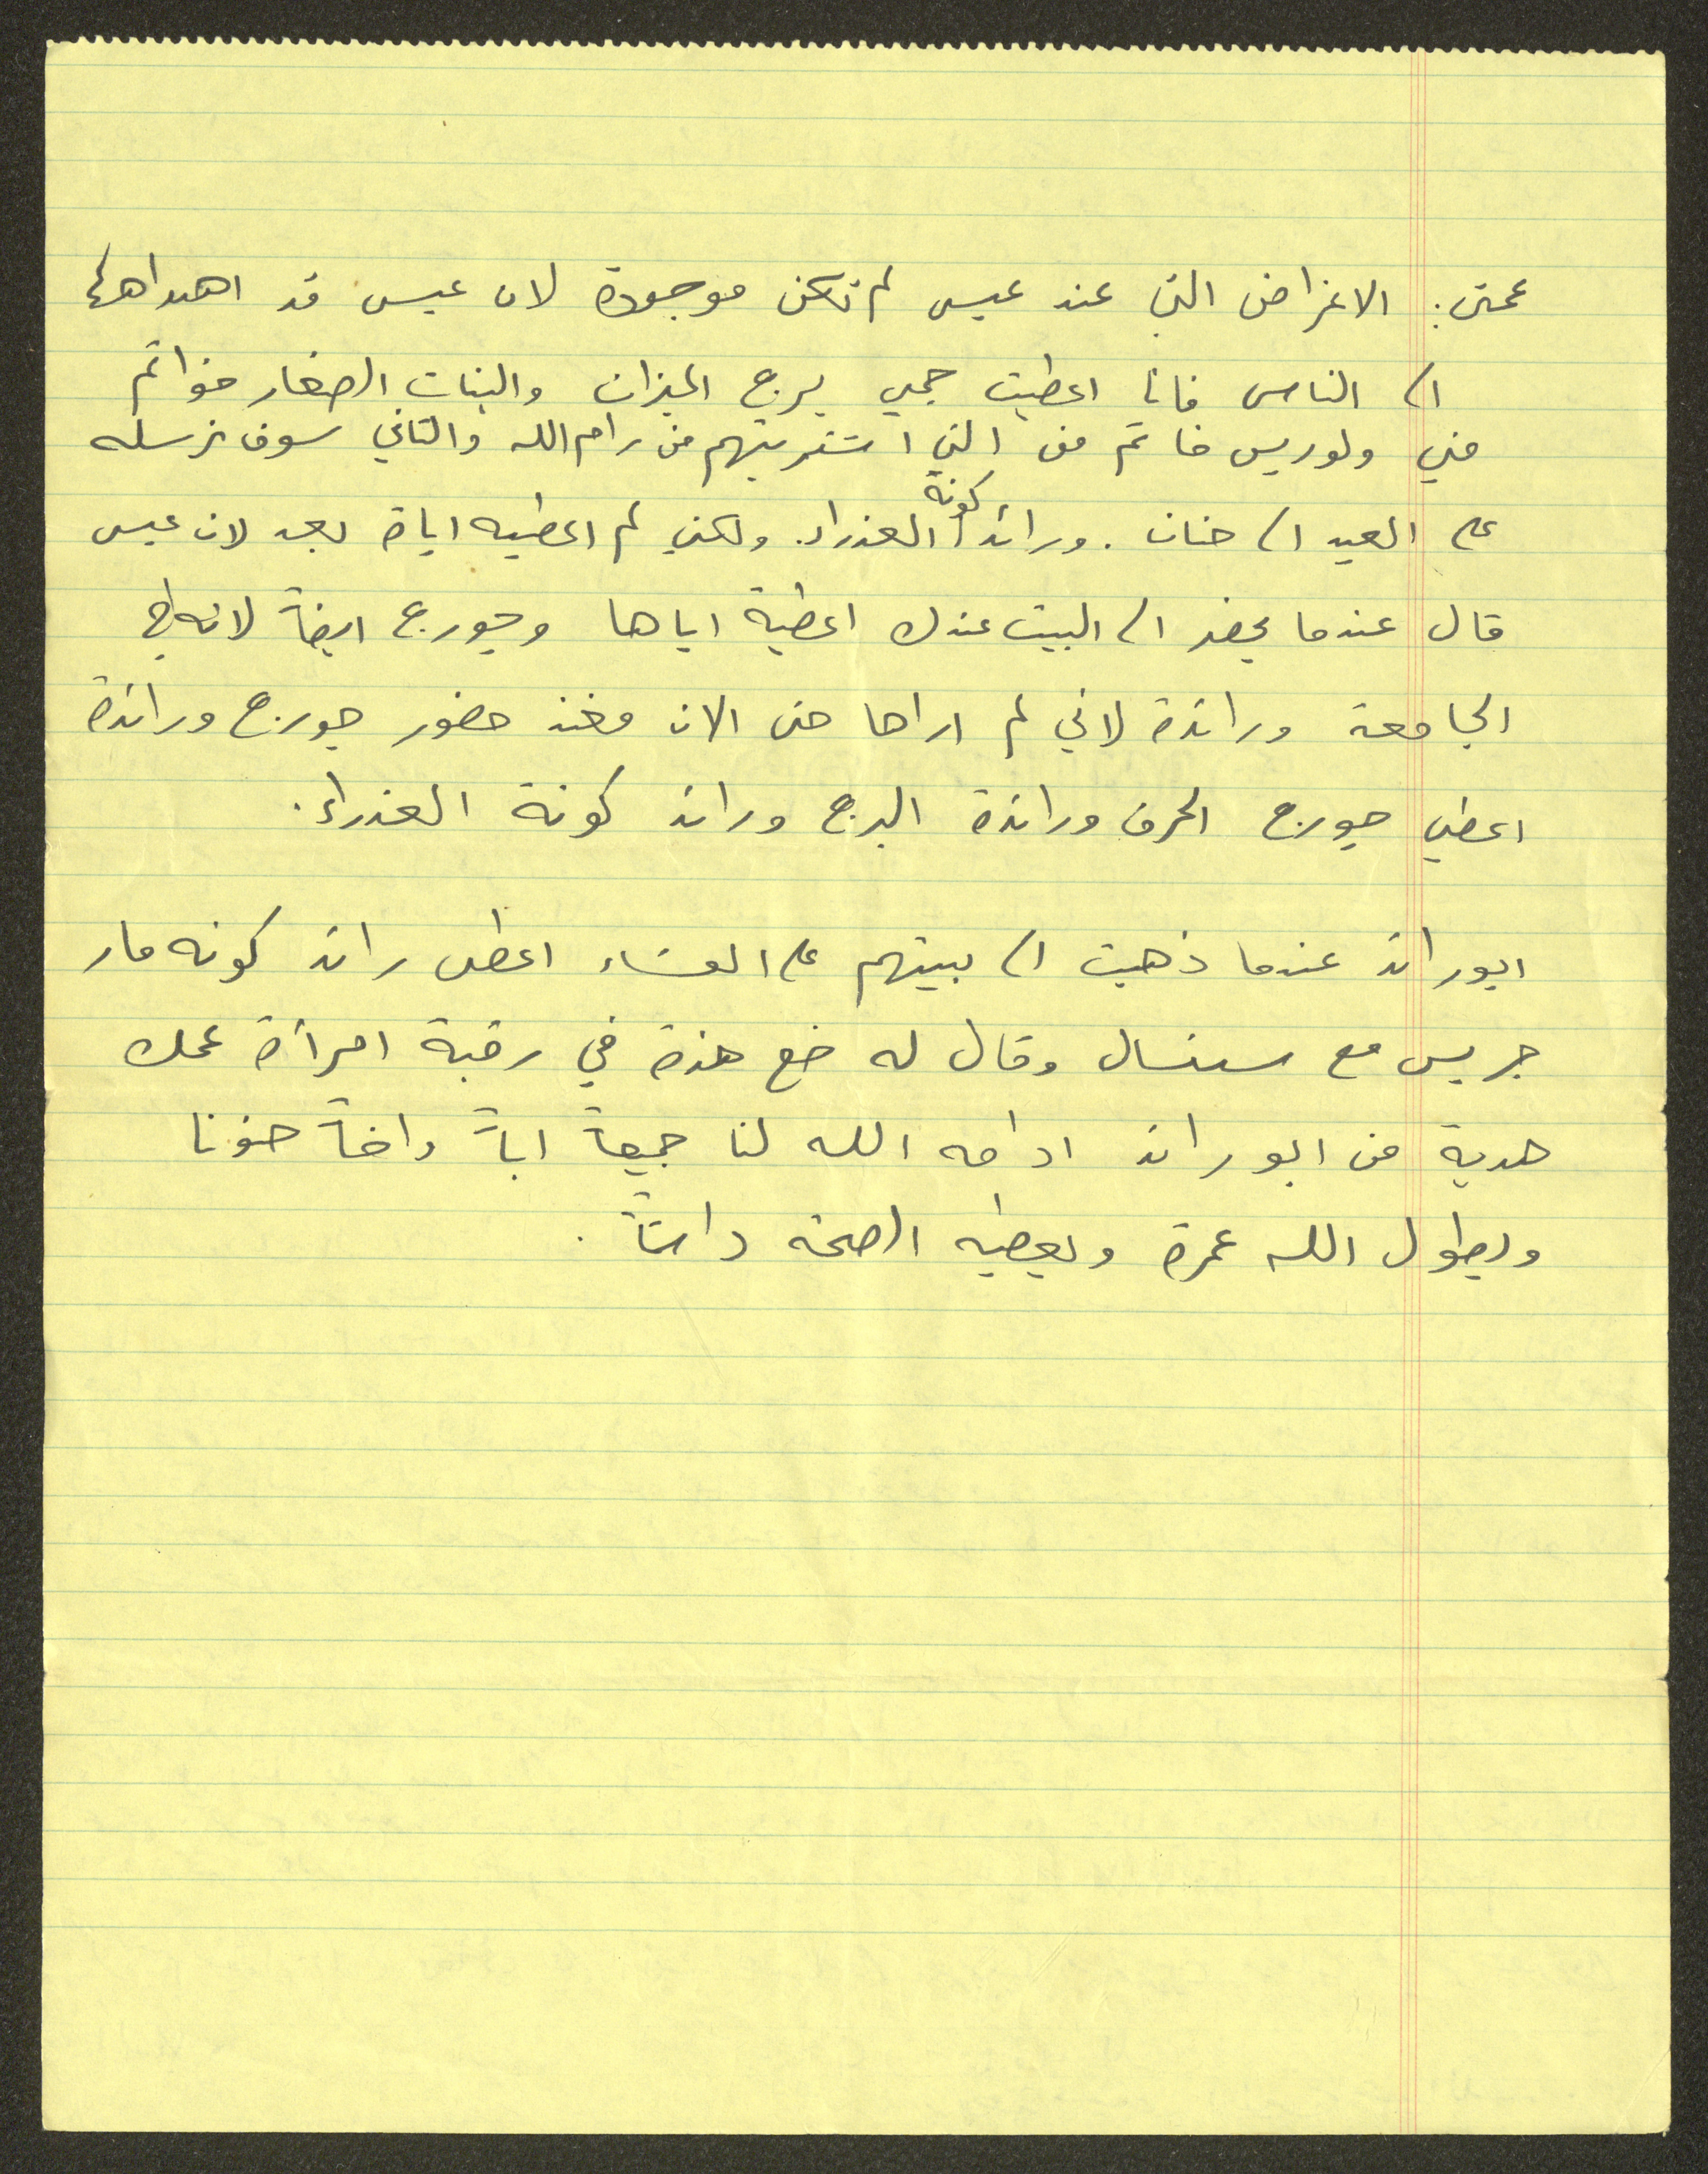 عمتي: الاغراض التي عند عيسى لم تكن موجودة لان عيسى قد اهداها
الى الناس فانا اعطيت جمي برج الميزان والبنات الصغار خواتم
مني ولوريس خاتم من التي اشتريتهم من رام الله والثاني سوف نرسله
على العيد الى حنان . ورائد كونة العذراء. ولكني لم اعطيه اياة بعد لان عيسى
قال عندما يحضر الى البيت عندك اعطية اياها وجورج ايضاً لانه في
الجامعة ورائدة لاني لم اراها حتى الان فعند حضور جورج ورائدة
اعطي جورج الحرف ورائدة البرج ورائد كونة العذراء.
ابو رائد عندما ذهبت الى بيتهم على العشاء اعطى رائد كونه مار
جريس مع سنسال وقال له ضع هذة في رقبة امرأة عمك
هدية من ابو رائد ادامه الله لنا جميعاً اباً واخاً حنونا
ويطول الله عمرة ويعطيه الصحة دائماً .